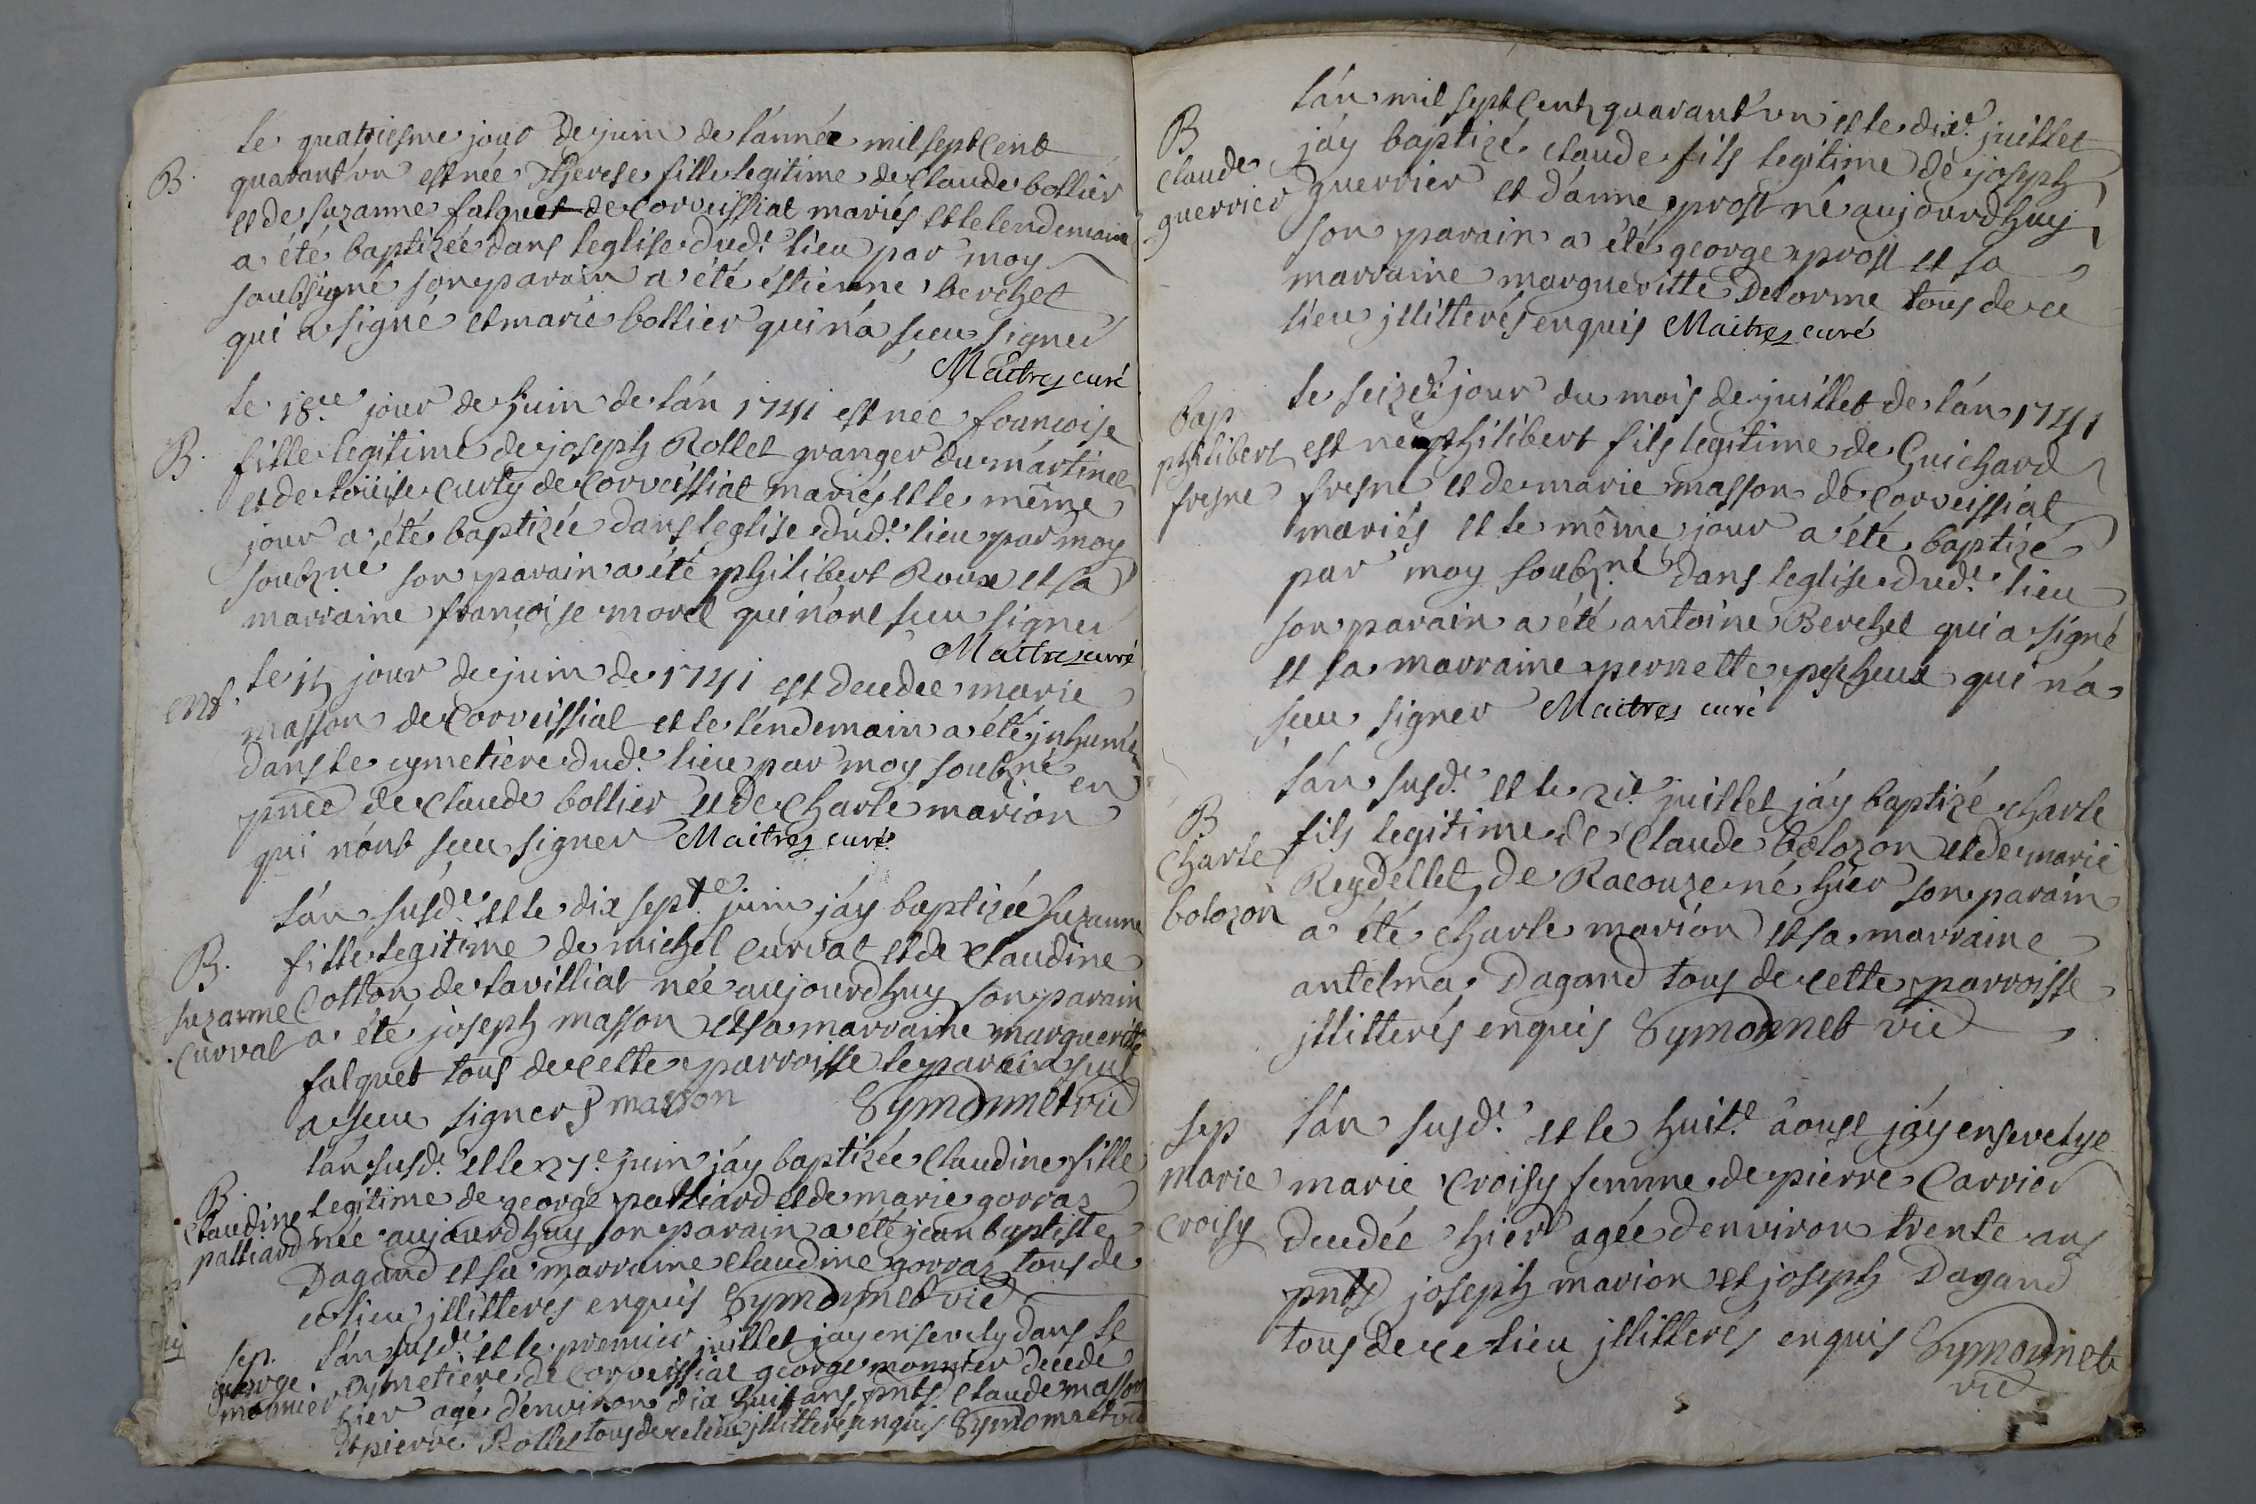 B.
le quatriesme jour de juin de l'année mil sept cent
quarant'un est née Therese fille legitime de Claude bollier
et de suzanne falquet de Corveissiat mariés et le lendemain
a été baptizée dans leglise dud.t lieu par moy
soubsigné son parain a été éstienne berchet
qui a signé et marie bollier qui n'a sceu signer
Maitres curé
B.
le 18.e jour de juin de l'án 1741 est née francoise
fille legitime de joseph Rollet granger du martinet
et de loüise Curty de Corveissiat mariés et le même
jour a été baptizée dans leglise dud.t lieu par moy
soubzné son parain a été philibert Roux et sa
marraine françoise morel qui n'ont sceu signer
Maitres curé
ent
le jour de juin de 1741 est decedee marie
masson de Corveissiat et le lendemain a été jnhumée
dans le cymetiere dud.t lieu par moy soubzné en
pnce de Claude bollier et de Charle marion
qui n'ont sceu signer Maitres curé
B.
suzanne
Curvat
l'án susd.t et le dix sept.e juin j'áy baptizée suzanne
fille legitime de michel Curvat et de Claudine
Cotton de lavilliat née aujourdhuy son parain
a été joseph masson et sa marraine marguerite
falquet tous de cette parroisse le parain seul
a sceu signer J masson Symonnet vic
B.
Claudine
palliard
l'án susd.t et le 27.e juin j'áy baptizée Claudine fille
legitime de george palliard et de marie gorraz
née aujourdhuy son parain a été jean baptiste
Dagand et sa marraine Claudine gorraz tous de
ce lieu jllitterés enquis Symonnet vic
sep.
george
monnier
l'án susd.t et le premier juillet jay ensevely dans le
cymetiere de Corveissiat george monnier decedé
hier agé d'environ dix huit ans pnts Claude masson
et pierre Rollet tous de ce lieu jllitterés enquis Symonnet vic
B
Claude
guerrier
l'án mil sept Cent quarant'un et le dix.e juillet
j'áy baptizé Claude fils legitime de joseph
guerrier et d'anne prost né aujourdhuy
son parain a été george prost et sa
marraine margueritte Delorme tous de ce
lieu jllitterés enquis Maitres curé
bap
philibert
fresne
le seize.e jour du mois de juillet de l'án 1741
est né philibert fils legitime de Guichard
fresne et de marie masson de Corveissiat
mariés et le même jour a été baptizé
par moy soubzné dans leglise dud.t lieu
son parain a été antoine Berchet qui a signé
et sa marraine pernette pescheux qui n'a
sceu signer Maitres curé
B
Charle
bolozon
l'án susd.t et le 21.e juillet j'áy baptizé charle
fils legitime de Claude bolozon et de marie
Reydellet de Racouze né hier son parain
a été charle marion et sa marraine
antelma Dagand tous de cette parroisse
jllitterés enquis Symonnet vic
sep
marie
Croisy
l'án susd.t et le huit.e aoust j'áy ensevelye
marie Croisy femme de pierre Carrier
decedée hier agée d'environ trente ans
pnts joseph marion et joseph Dagand
tous de ce lieu jllitterés enquis Symonnet
vic